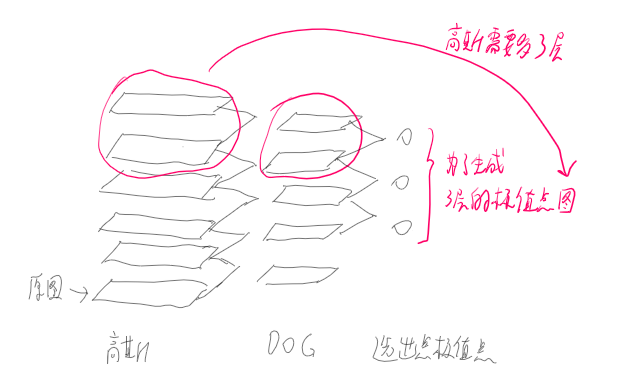 高斯需要多3层
为了生成
3层的极值点图
原图
高斯
DOG
选出点极值点